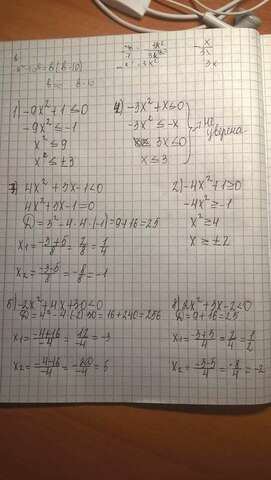 1) -9x²+1≤0
-9x²≤-1
x²≤9
x²≤±3
4) -3x²+x≤0
-3x²≤-x
3x≤0
x≤3
не уверена
7) 4x²+3x-1<0
4x²+3x-1=0
D=3²-4·4·(-1)=9+16=25
x₁=(-3+5)/8=2/8=1/4
x₂=(-3-5)/8=-8/8=-1
2) -4x²+1≥0
-4x²≥-1
x²≥4
x≥±2
5) -2x²+4x+30<0
D=4²-4·(-2)·30=16+240=256
x₁=(-4+16)/-4=12/-4=-3
x₂=(-4-16)/-4=-20/-4=5
8) 2x²+3x-2<0
D=9+16=25
x₁=(-3+5)/4=2/4=1/2
x₂=(-3-5)/4=-8/4=-2